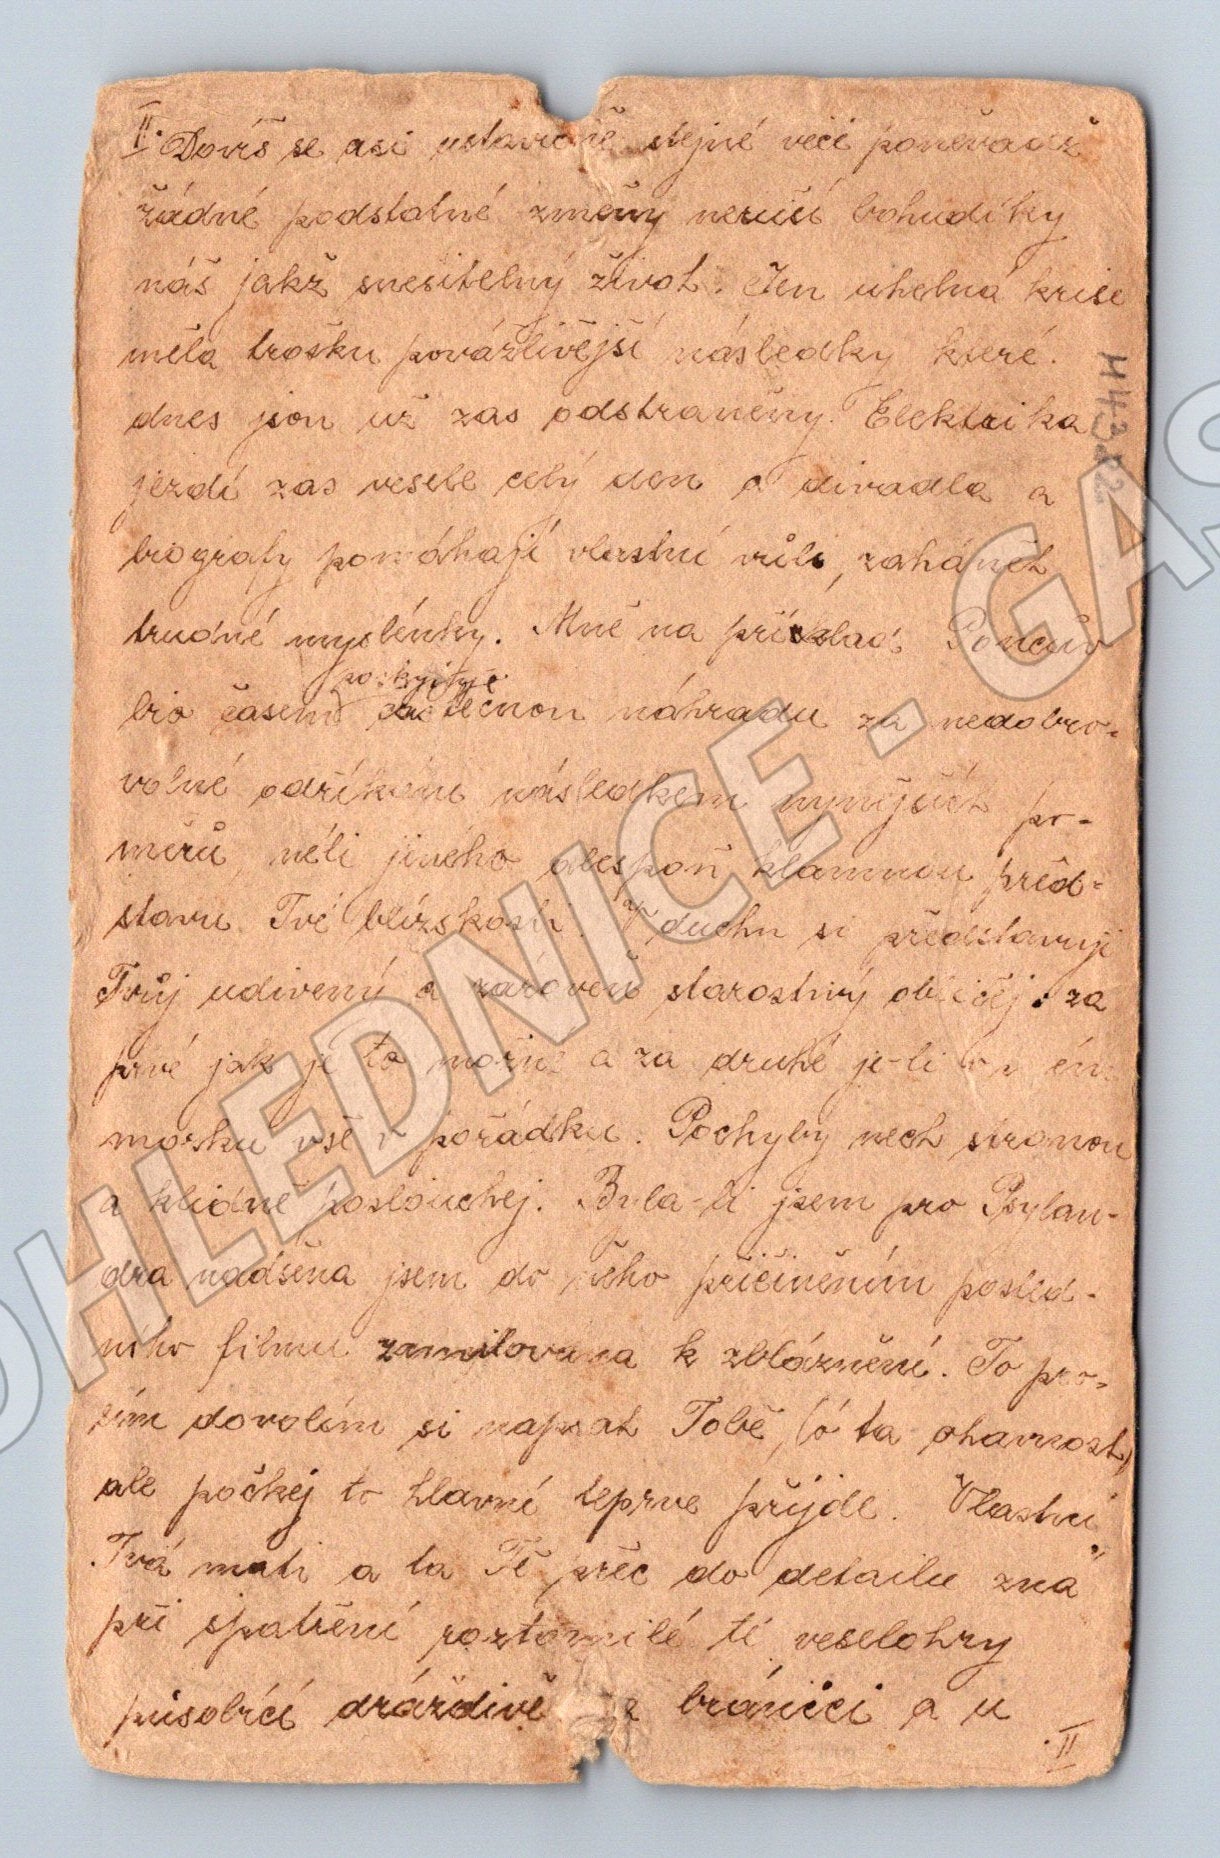 II. Dovíš se asi ustavičně stejné věci poněvadž
žádné podstatné změny neruší bohudíky
náš jakž snesitelný život. Jen uhelná krise
měla trošku povážlivější následky které.
dnes jsou už zas odstraněny. Elektrika
jezdí zas vesele celý den a divadla a
biografy pomáhají vlastní vůli, zahánět
trudné myšlénky. Mně na příklad Poncův
bio časem poskytuje náhradu za nedobro-
volné odříkání následkem nynějších po-
měrů méti jiného alespoň klamnou před-
stavu Tvé blízkosti. V duchu si představuji
Tvůj udivený a zároveň starostlivý obličej. za
prvé jak je to možné a za druhé je-li v
mozku vše v pořádku. Pochyby nech stranou
a klidně poslouchej. Byla-li jsem pro Psylan-
dra nadšena jsem do něho přičiněním posled-
ního filmu zamilována k zbláznění. To pro-
sím dovolím si napsat Tobě, (ó ta ohavnost)
ale počkej to hlavní teprve přijde. Vlastní
Tvá mati a ta Tě přec do detailu zná
při spatření roztomilé té veselohry
působící dráždivě na bránici a u
II
H4322
POHLEDNICE - GAS